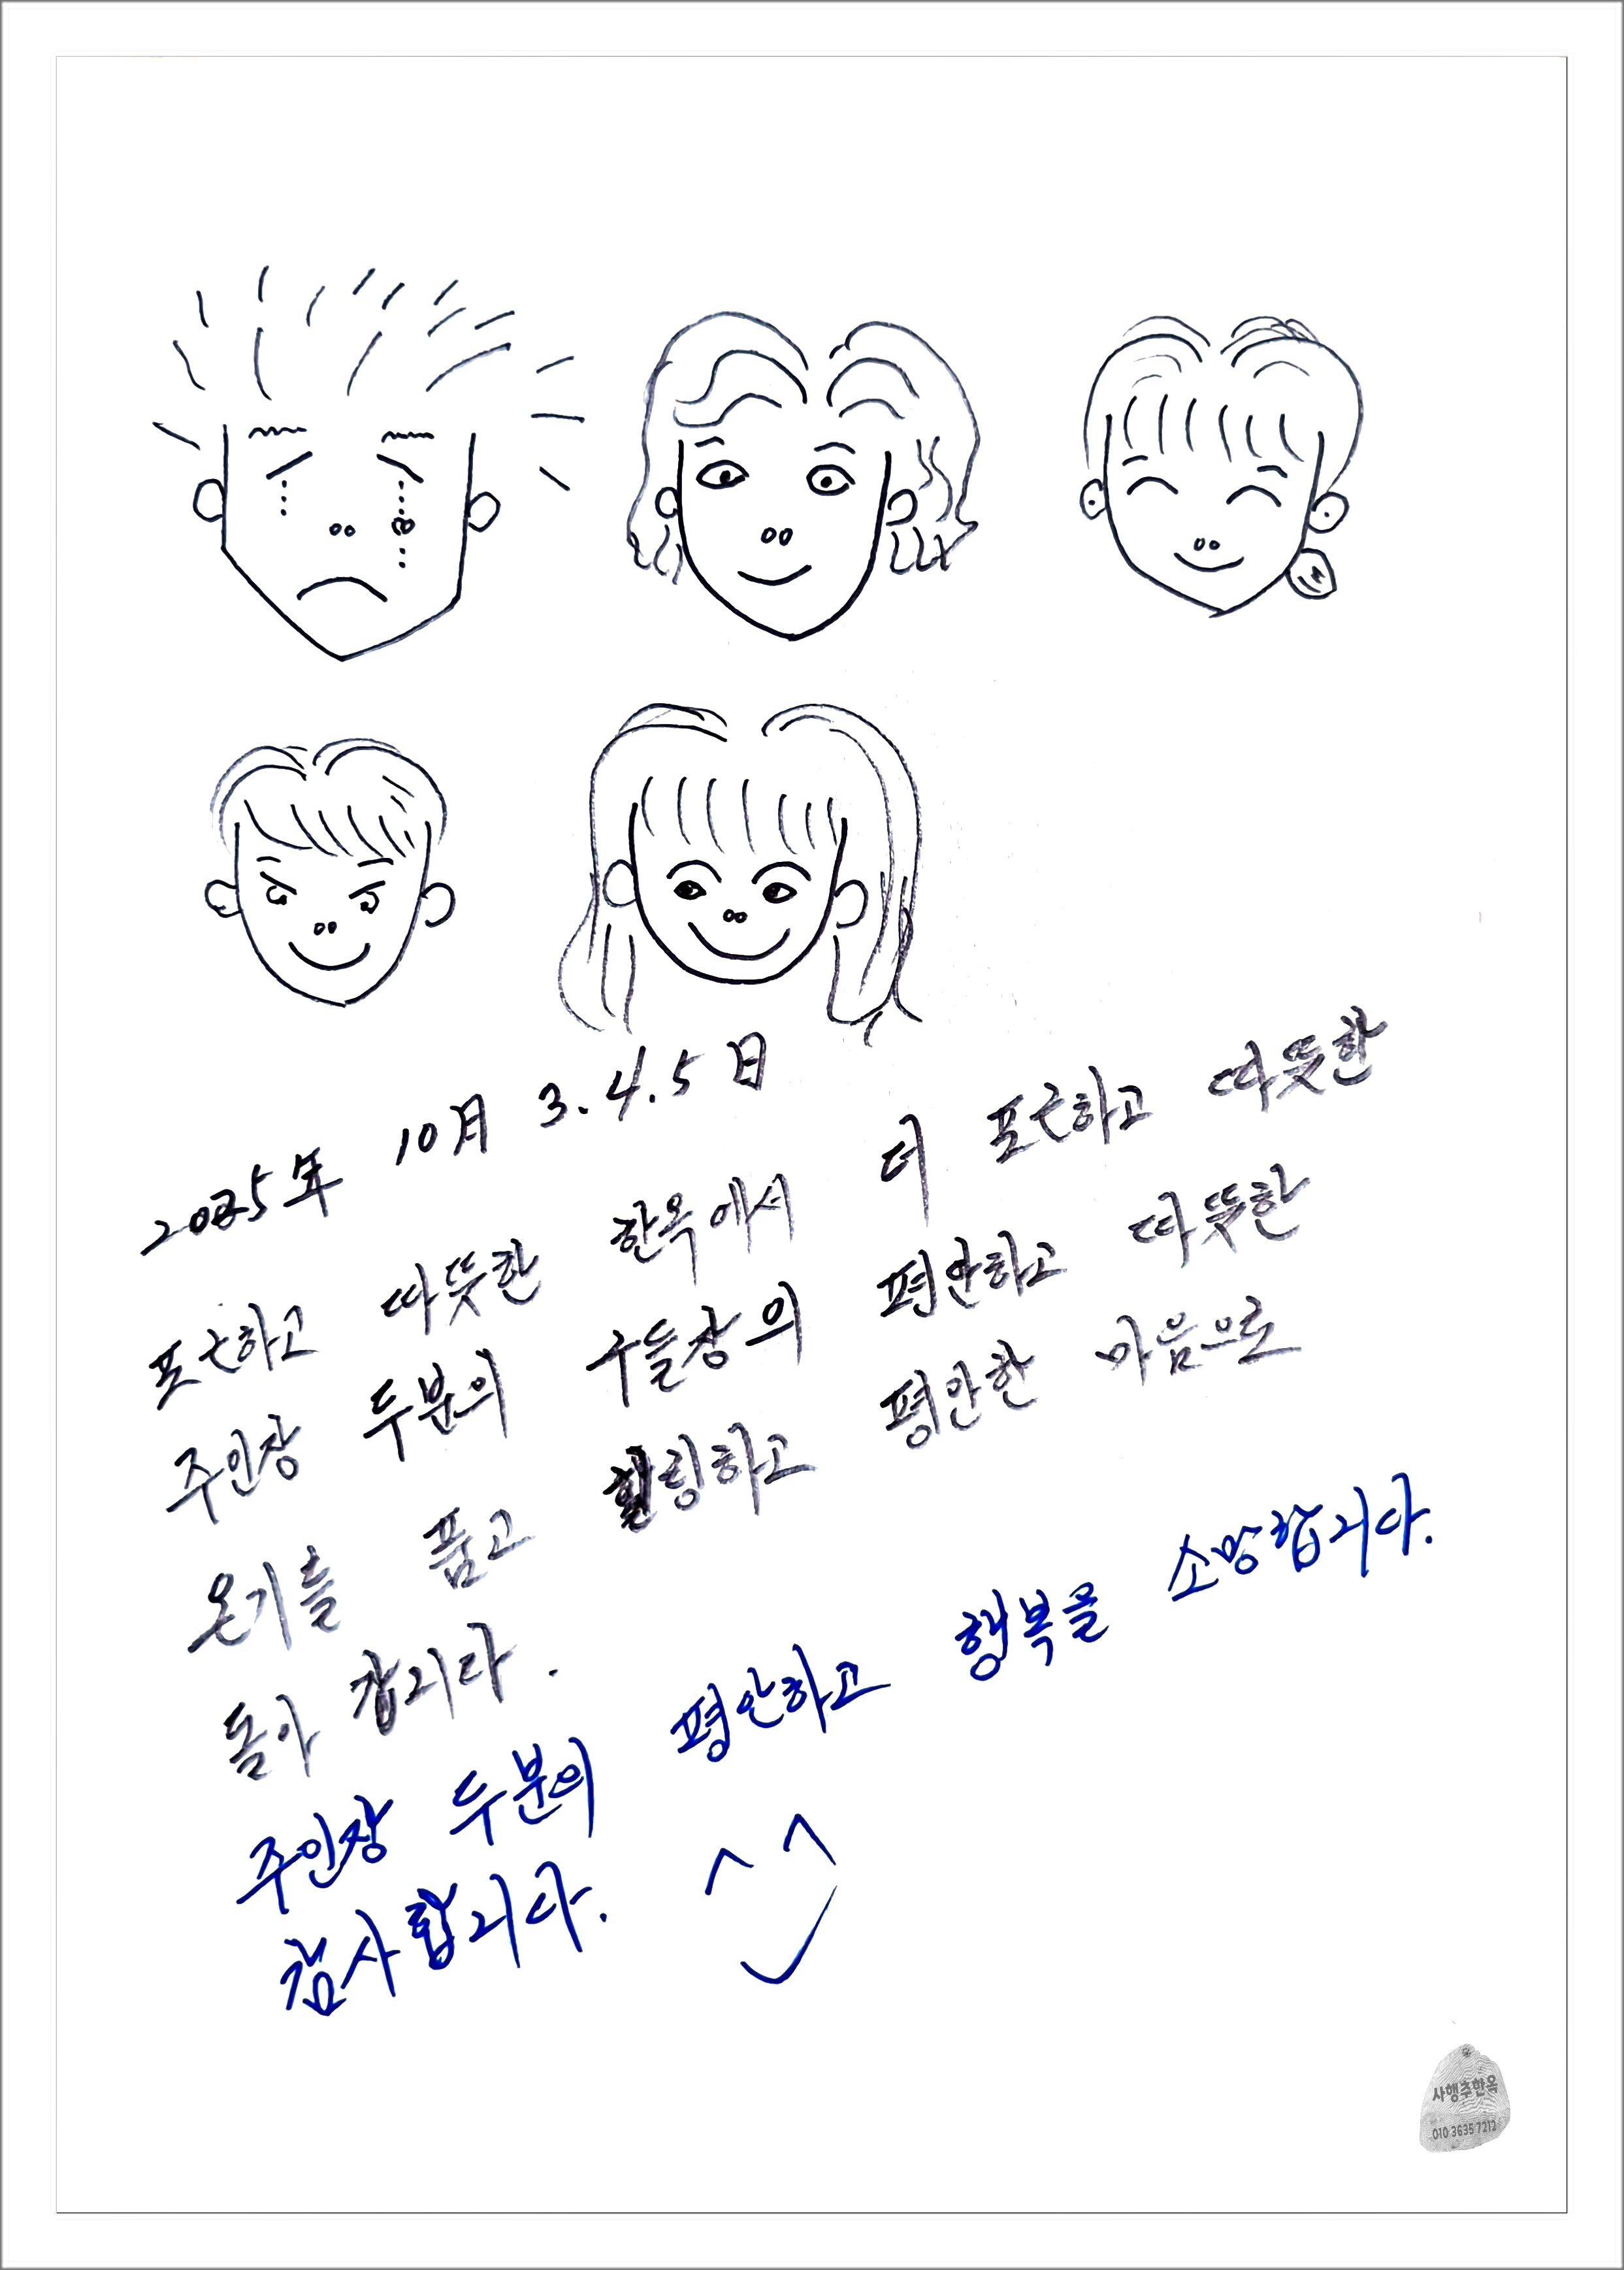 2025年 10月 3.4.5日
포근하고 따뜻한 한옥에서 더 포근하고 따뜻한
주인장 두분의 구들장의 평안하고 따뜻한
온기를 품고 힐링하고 평안한 마음으로
돌아 갑니다.
주인장 두분의 평안하고 행복을 소망합니다.
감사합니다.
사행추한옥
010 3635 7212